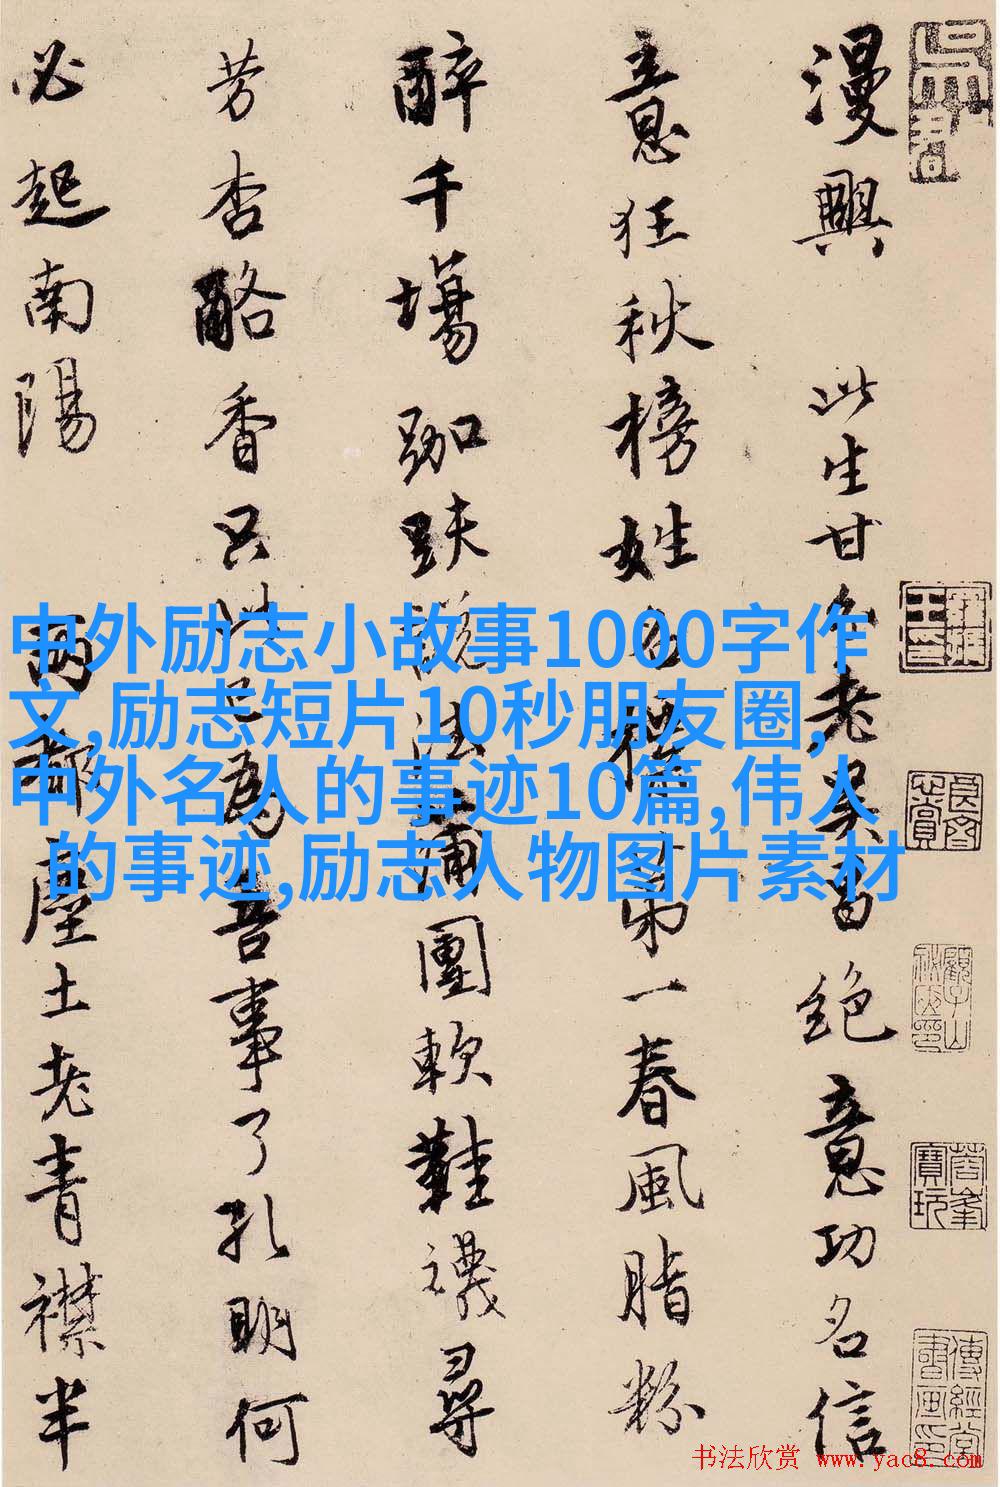 漫興 此生甘分老吳昌絕意功名信
意狂秋榜姓名標第一春風脂粉
醉千場跏趺說法蒲團軟鞋襪尋
芳杏酪香只此已為吾事了孔明何
必起南陽 兩都塵土老青襟半
中外励志小故事1000字作
文,励志短片10秒朋友圈,
中外名人的事迹10篇,伟人
的事迹,励志人物图片素材
书法欣赏 www.yac8.com